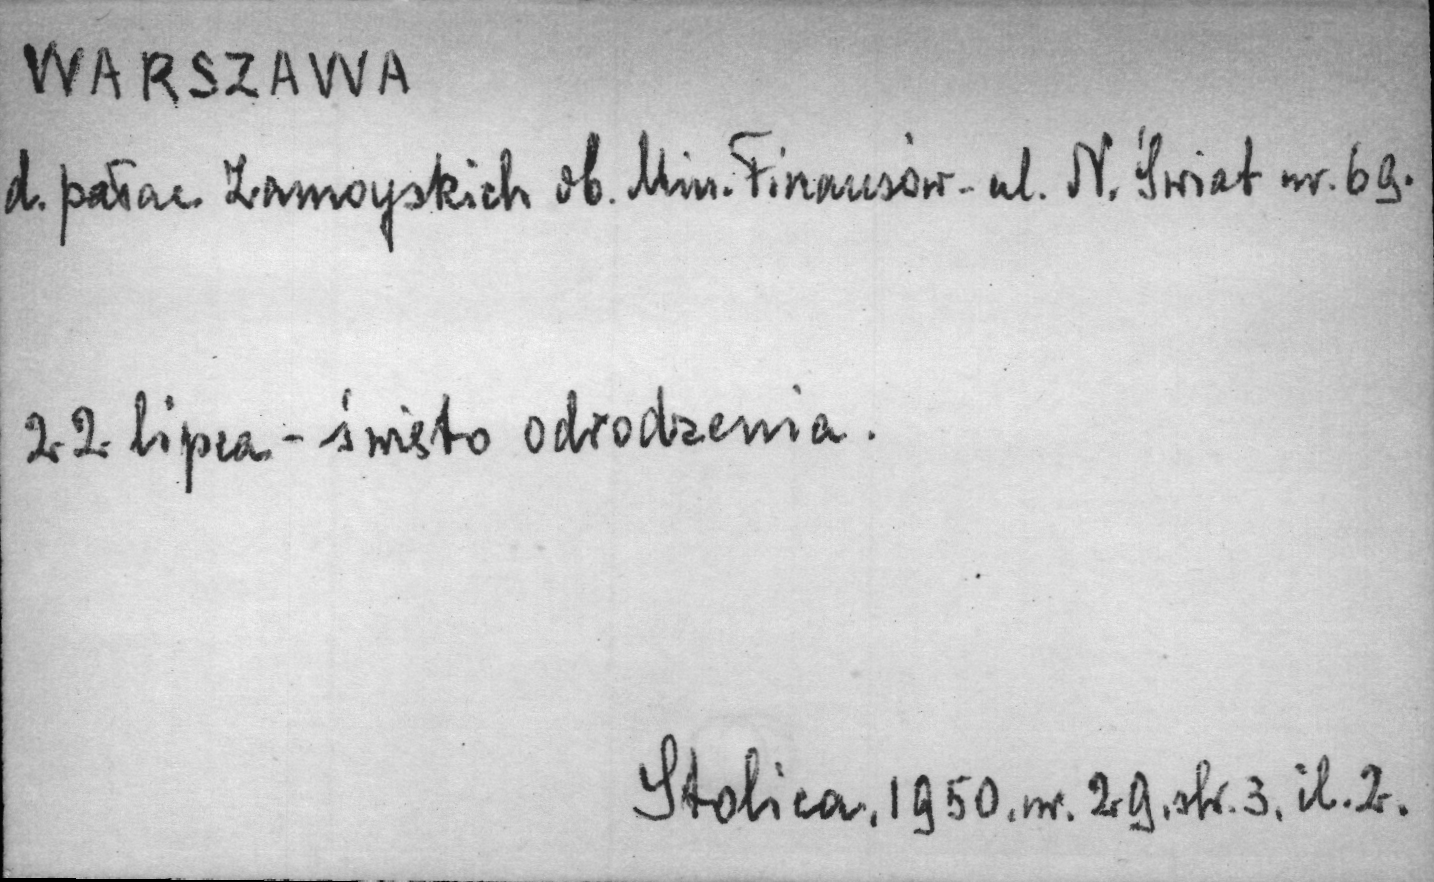 WARSZAWA
d. pałac Zamoyskich ob. Min. Finansów - ul. N. Świat nr. 69.
22 lipca - święto odrodzenia.
Stolica, 1950. nr. 29. str. 3. il. 2.